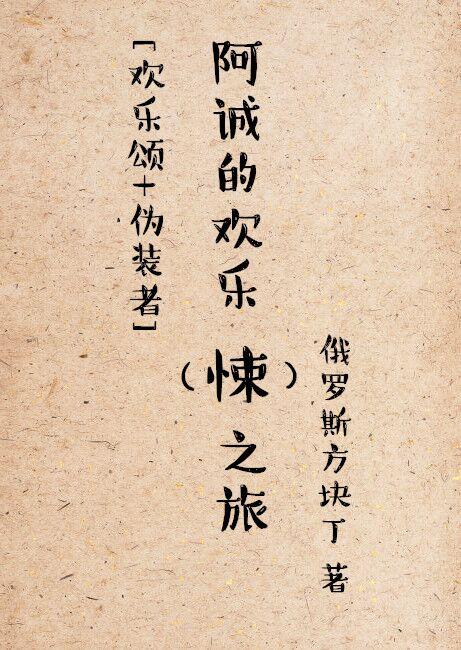 阿诚的欢乐（悚）之旅
[欢乐颂+伪装者]
俄罗斯方块丁 著